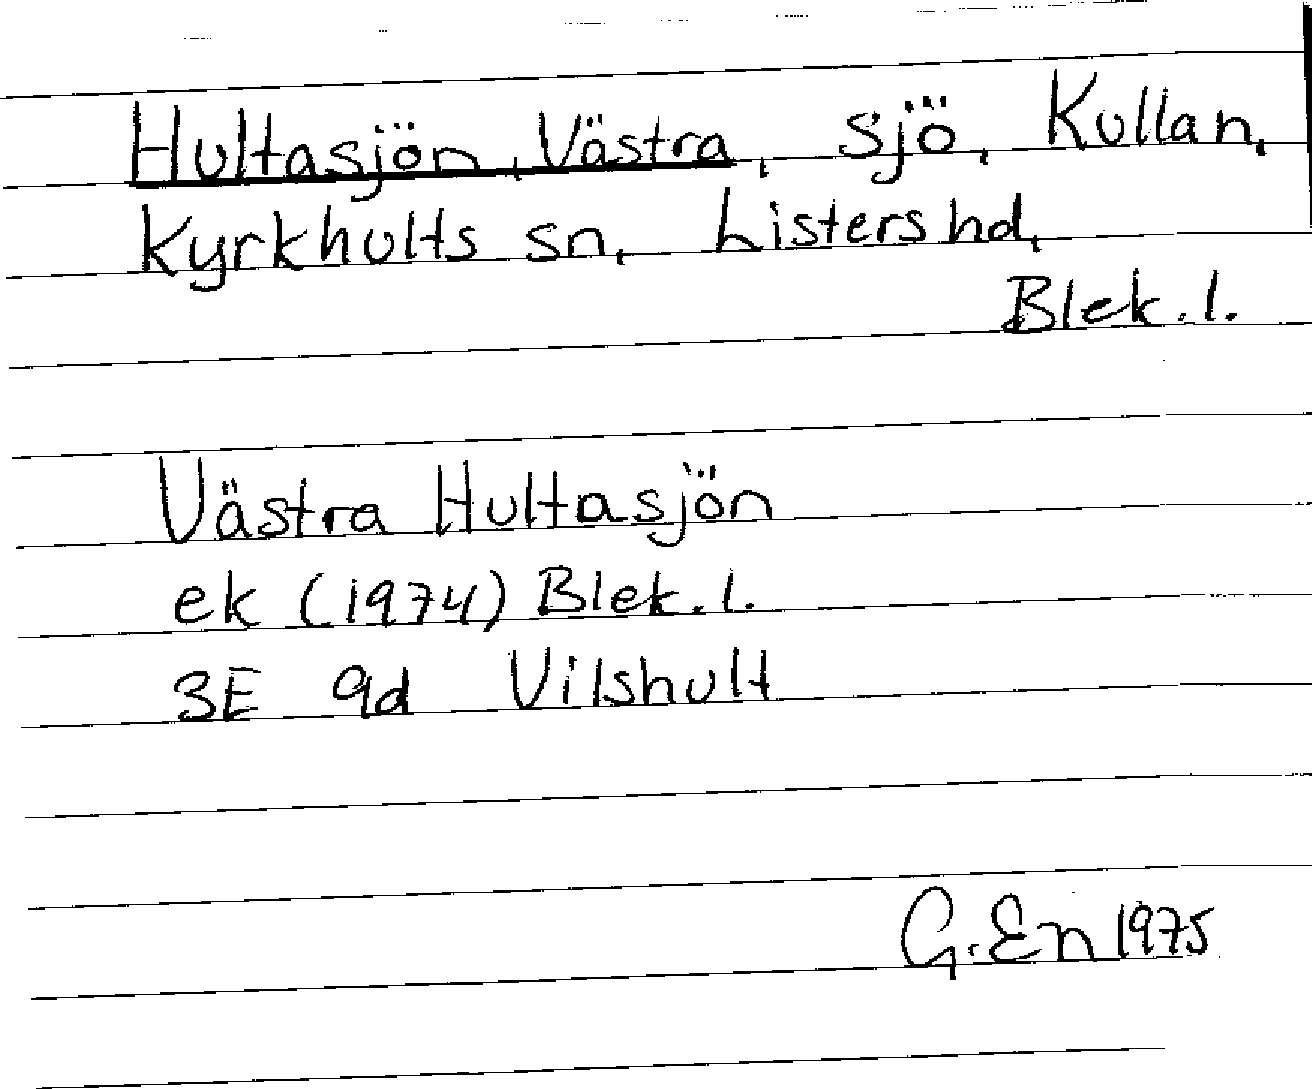 Hultasjön, Västra, sjö, Kullan,
Kyrkhults sn, Listers hd,
Blek. l.
Västra Hultasjön
ek (1974) Blek. l.
3E 9d Vilshult
G. En 1975